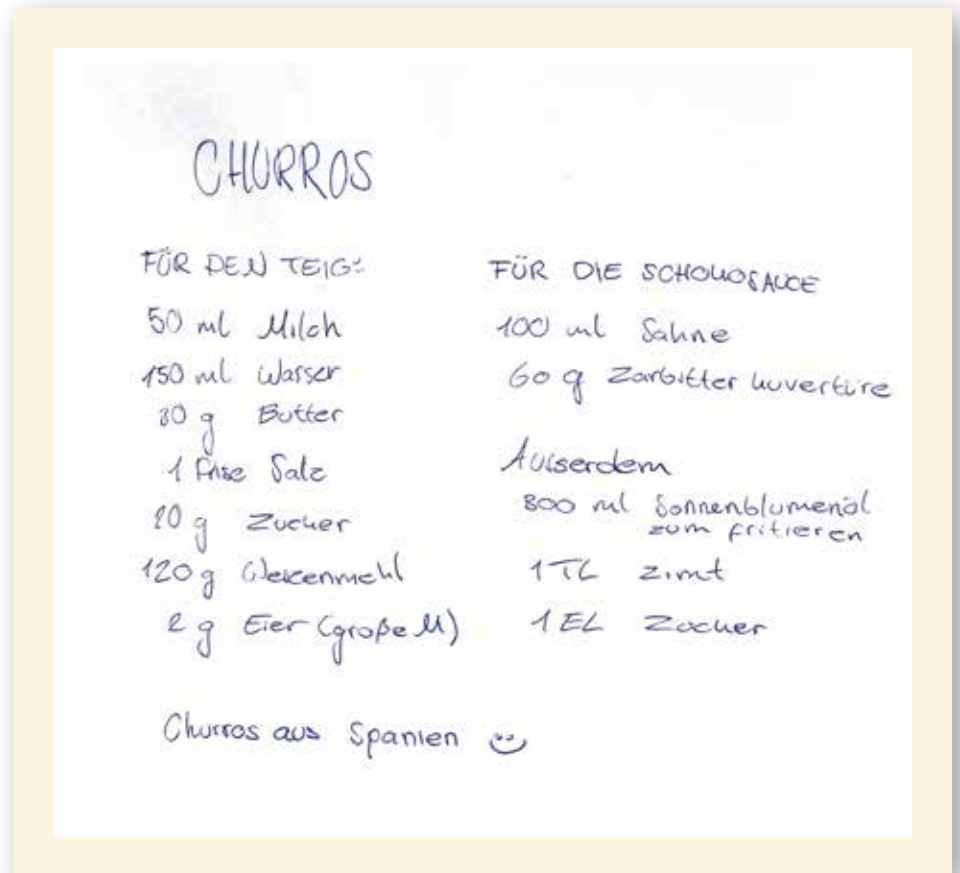 CHURROS
FÜR DEN TEIG:
50 ml Milch
150 ml Wasser
30 g Butter
1 Prise Salz
20 g Zucker
120 g Weizenmehl
2 g Eier (große M)
FÜR DIE SCHOKOSAUCE
100 ml Sahne
60 g Zarbitter kuvertüre
Ausserdem
800 ml Sonnenblumenöl
zum fritieren
1 TL Zimt
1 EL Zucker
Churros aus Spanien